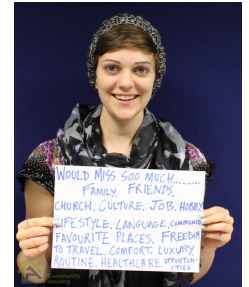 WOULD MISS SOO MUCH.........
FAMILY. FRIENDS.
CHURCH. CULTURE. JOB. HOBBY
LIFESTYLE. LANGUAGE. COMMUNITY
FAVOURITE PLACES. FREEDOM
TO TRAVEL. COMFORT. LUXURY.
ROUTINE. HEALTHCARE. OPPORTUN-
ITIES
Community
Housing